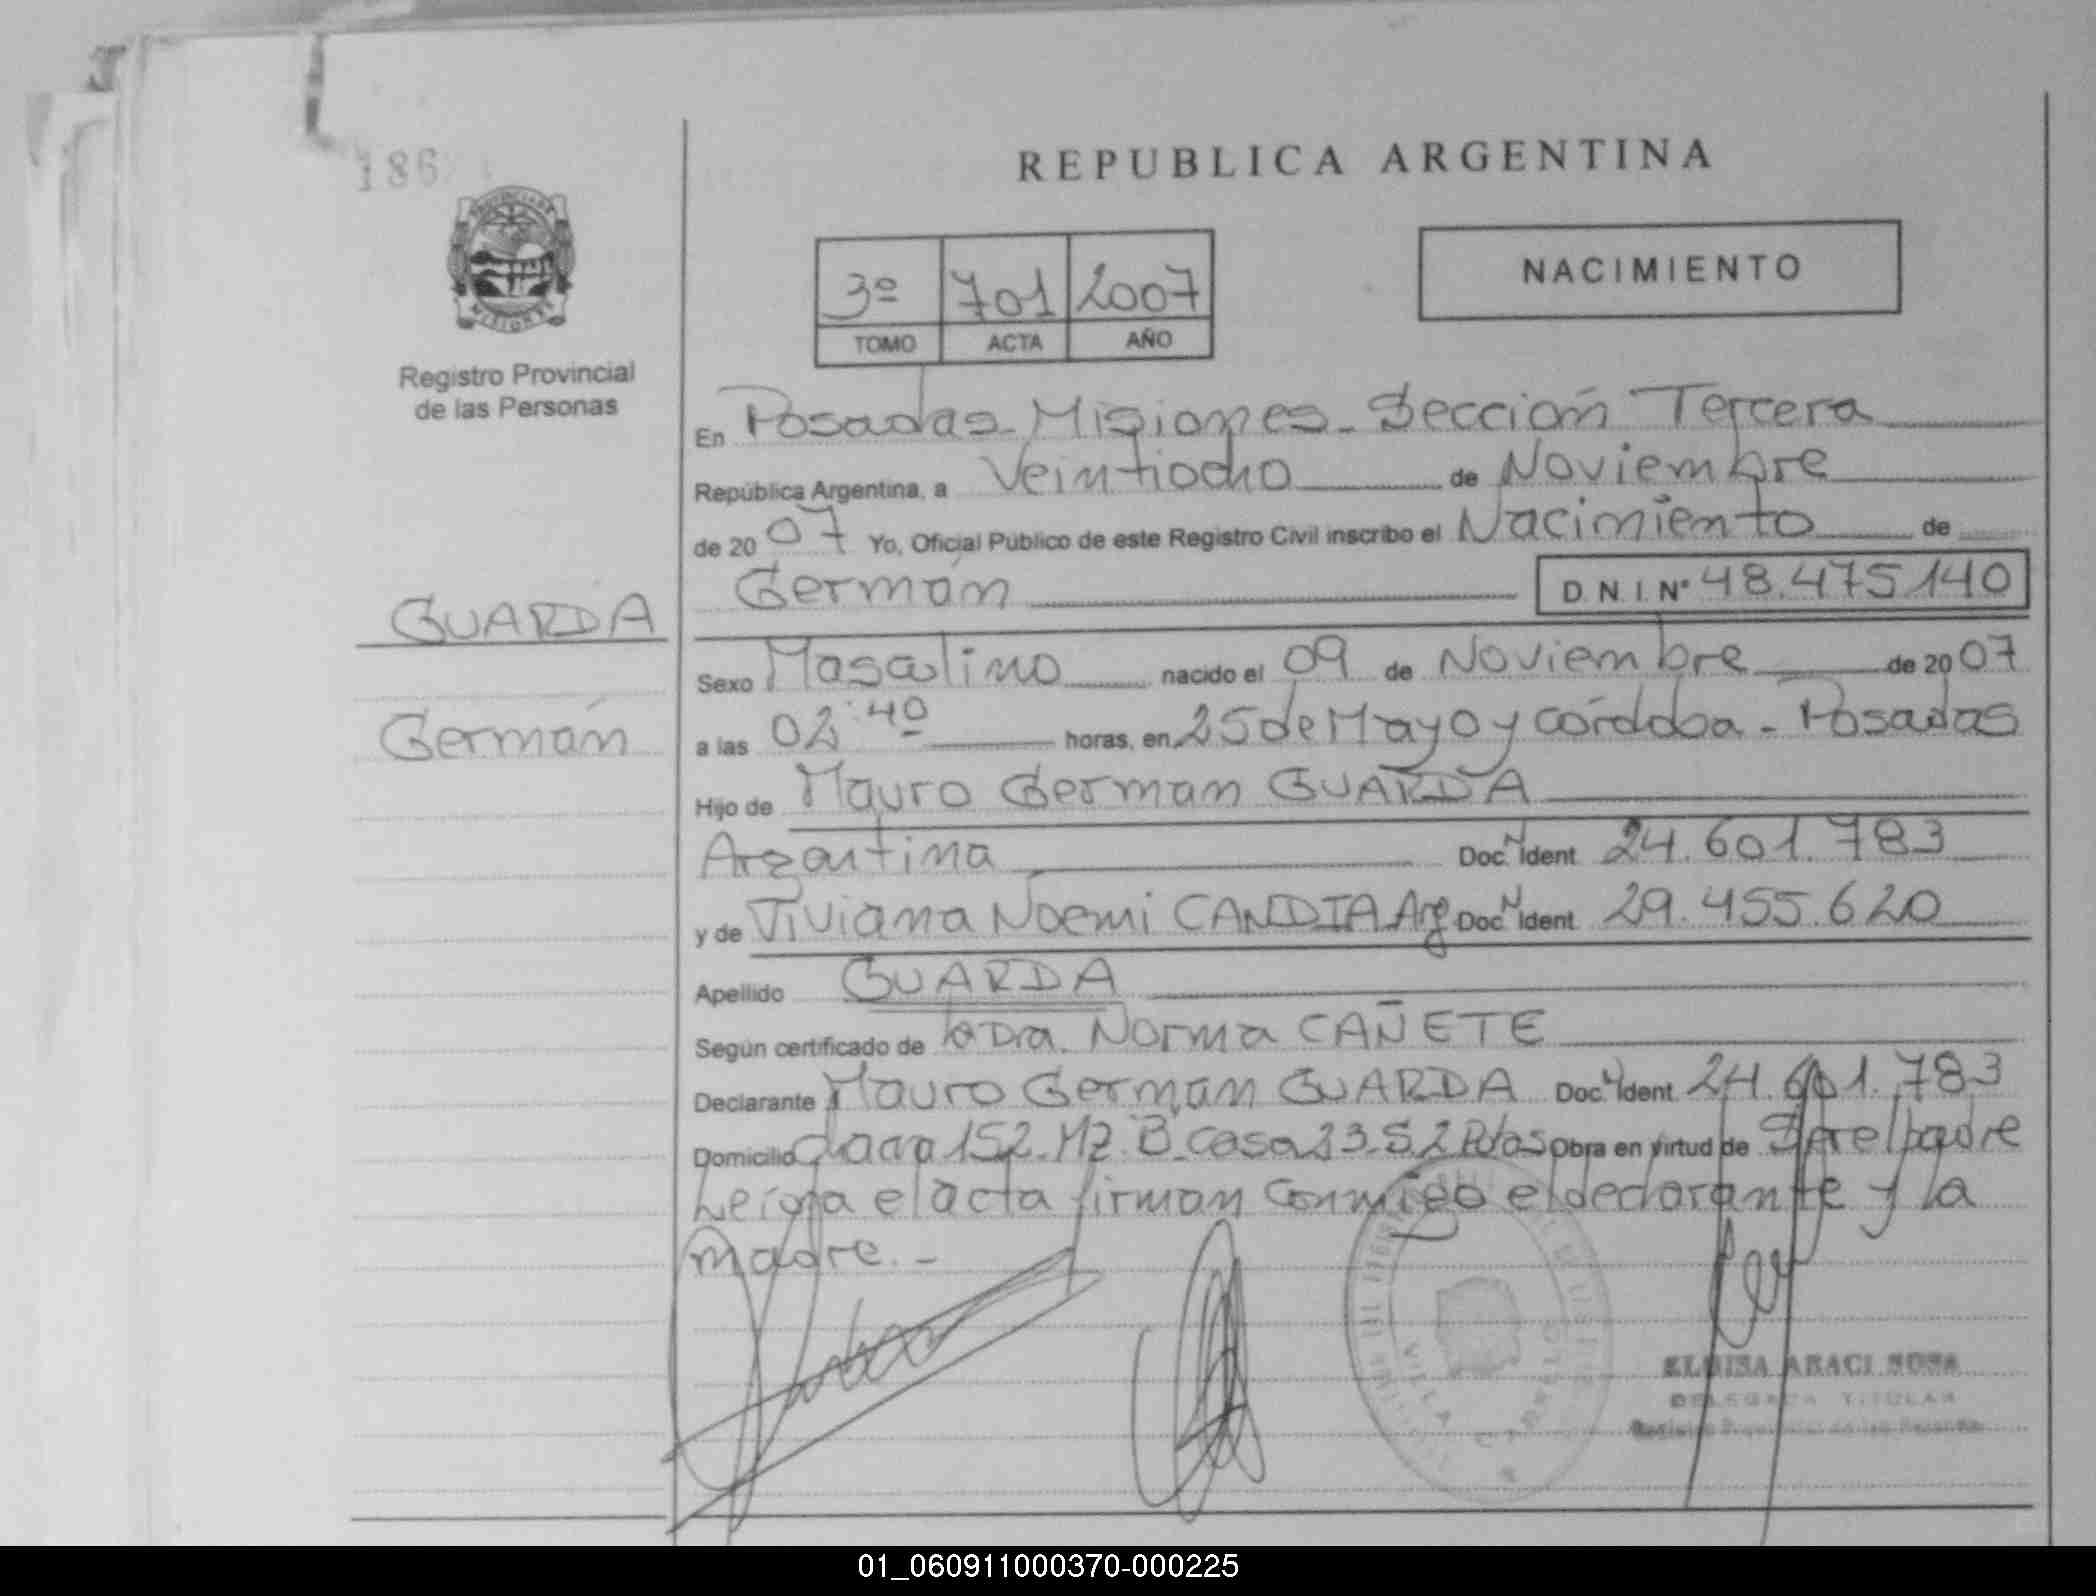 186
REPUBLICA ARGENTINA
PROVINCIA DE
MISIONES
Registro Provincial
de las Personas
3º 701 2007
TOMO ACTA AÑO
NACIMIENTO
En Posadas-Misiones-Sección Tercera
República Argentina, a Veintiocho de Noviembre
de 2007 Yo, Oficial Público de este Registro Civil inscribo el Nacimiento de
Germán D.N.I. Nº 48.475.140
GUARDA
Germán
Sexo Masculino nacido el 09 de Noviembre de 2007
a las 02:40 horas, en 25 de Mayo y córdoba - Posadas
Hijo de Mauro German GUARDA
Argentina Doc. N Ident 24.601.783
y de Viviana Noemi CANDIA Arg Doc. N Ident 29.455.620
Apellido GUARDA
Según certificado de la Dra. Norma CAÑETE
Declarante Mauro German GUARDA Doc. N Ident 24.601.783
Domicilio chacra 152-Mz. B-Casa 23-S.2 Pdas Obra en virtud de Ser el padre
Leída el acta firman conmigo el declarante y la
madre.-
VILLA CABELLO
ELOISA ARACI SOSA
DELEGADA TITULAR
Registro Provincial de las Personas
01_060911000370-000225